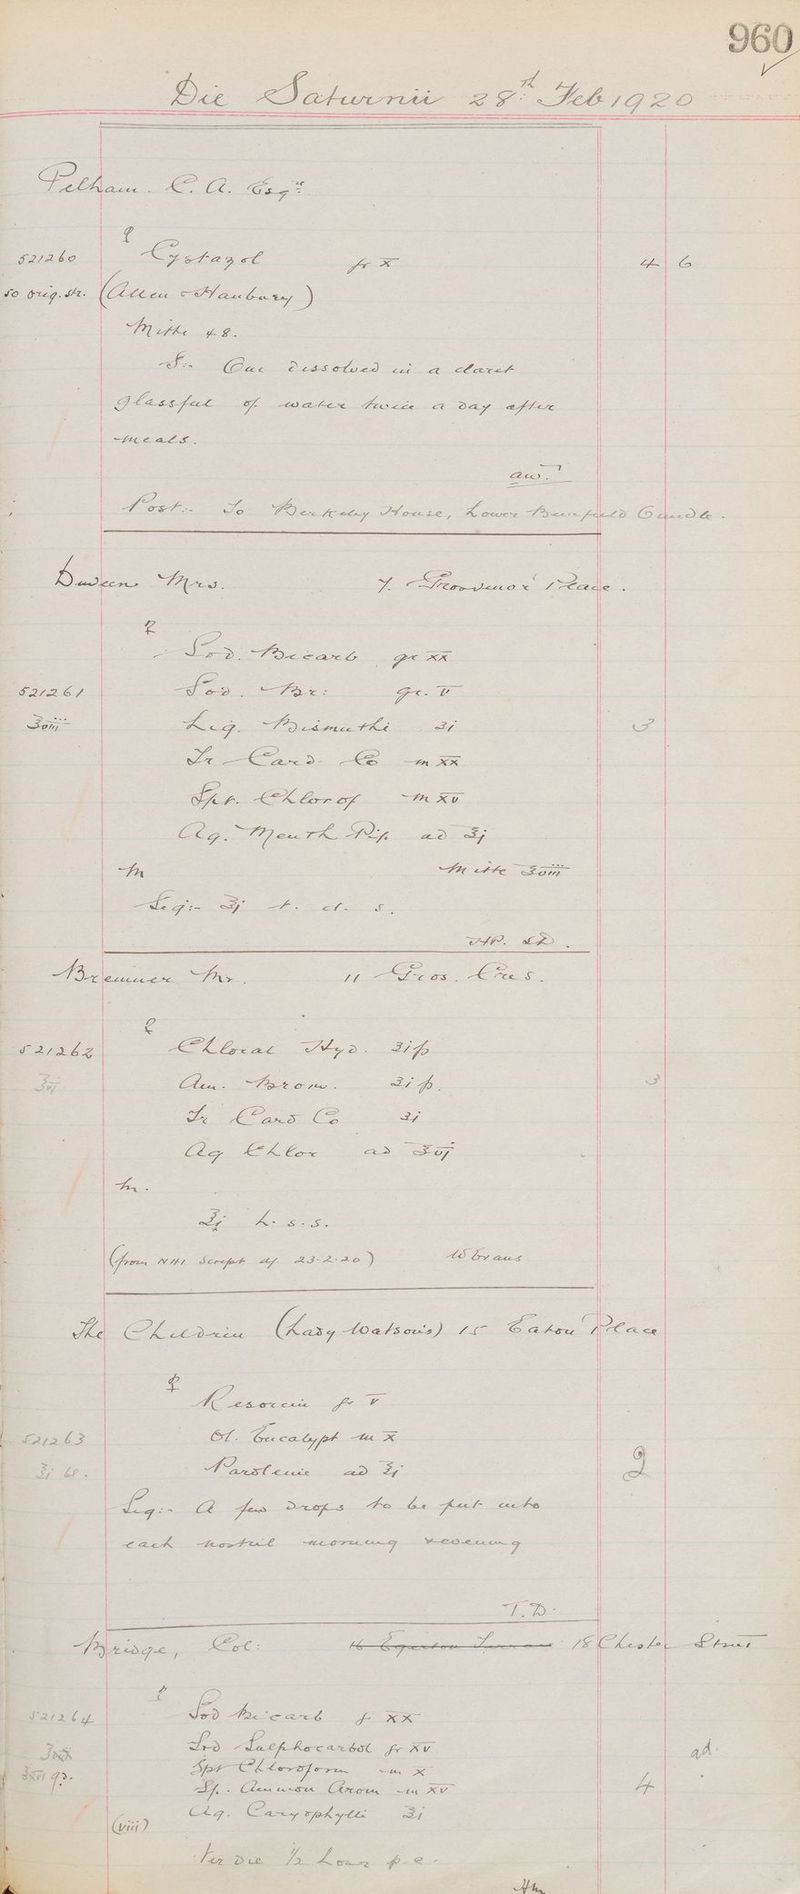 960
Die Saturnii 28th Feb 1920
Pelham. C. A. Esqre
℞
521260 Cystazol gr x̅ 4 6
50 orig. str. (Allen & Hanbury)
Mitte 48.
S:- One dissolved in a claret
glassful of water twice a day after
meals.
Post:- To Berkeley House, Lower Oundle.
Mrs. 7. Grosvenor Place.
℞
Sod. Bicarb gr x̅x̅
521261 Sod. Br: gr. v̅
ʒviii Liq. Bismuthi ʒi 3
Tr Card. Co m x̅x̅
Spt. Chlorof m x̅v̅
Aq. Menth Pip. ad ℥j
M Mitte ℥viii
Sig:- ℥j t. d. s.
HP. SD.
Bremner Mr. 11 Gros. Cres.
℞
521262 Chloral Hyd. ʒiß
℥vj Am. Brom. ʒiß. 3
Tr Card Co ʒi
Aq Chlor ad ℥vj
M.
℥j h. s. s.
(from NHI script of 23.2.20) W Evans
The Children (Lady Watson's) 15 Eaton Place
℞
Resorcin gr v̅
521263 Ol. Eucalypt m x̅
℥j Paroleine ad ℥j 2
Sig:- A few drops to be put into
each nostril morning & evening
T.D.
Bridge, Col: 16 Egerton Terrace 18 Chester Street
℞
521264 Sod Bicarb gr x̅x̅
Sod Sulphocarbol gr x̅v̅ ad.
Spt Chloroform m x̅
Sp. Ammon Arom m x̅v̅ 4
Aq. Caryophylli ℥i
(viii)
ter die ½ hour p.c.
Hm